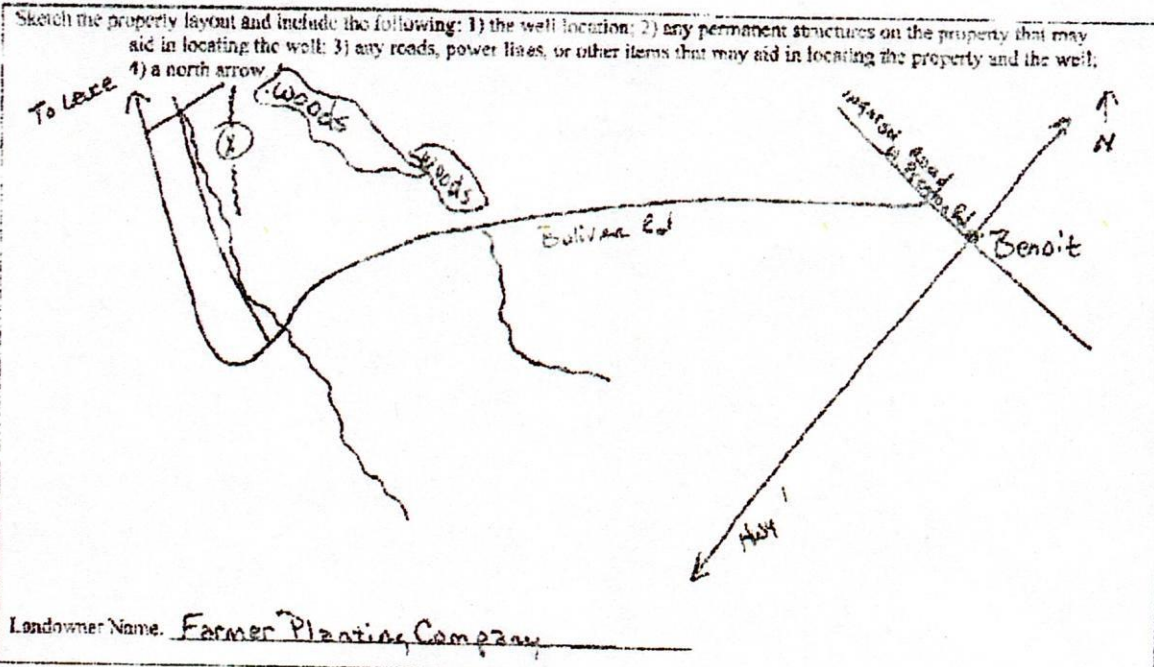 Sketch the property layout and include the following: 1) the well location; 2) any permanent structures on the property that may
aid in locating the well; 3) any roads, power lines, or other items that may aid in locating the property and the well;
4) a north arrow
To Levee
X
woods
woods
Road
N
Boliver Rd
Benoit
Hwy 1
Landowner Name. Farmer Planting Company